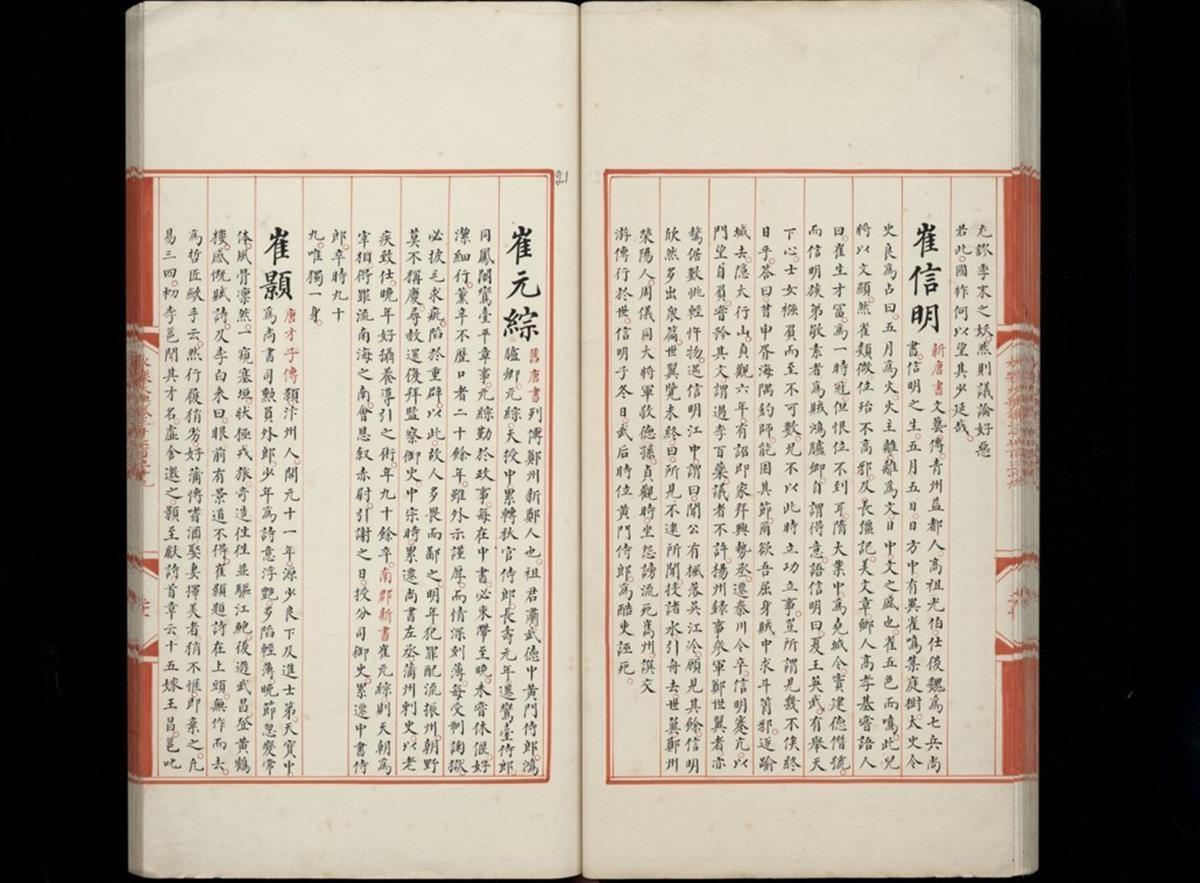 尤諺季末之妖。然則議論好惡
若此。國祚何以望其少延哉。
崔信明 新唐書文藝傳。青州益都人。高祖光伯仕後魏為七兵尚
書。信明之生。五月五日日方中。有異雀鳴集庭樹。太史令
史良為占曰。五月為火。火主離。離為文。日中。文之盛也。雀五色而鳴。此兒
將以文顯。然雀類微。位殆不高邪。及長彊記。美文章。鄉人高孝基嘗語人
曰。崔生才冨。為一時冠。但恨位不到耳。隋大業中。為堯城令。竇建德僭號。
而信明族弟敬素者。為賊鴻臚卿。自謂得意。語信明曰。夏王英武。有舉天
下心。士女襁負而至不可數。兄不以此時立功立事。豈所謂見幾不俟終
日乎。答曰。昔申胥海隅釣師。能固其節。爾欲吾屈身賊中求斗筲邪。遂踰
城去。隱太行山。貞觀六年。有詔即家拜興勢丞。遷秦川令。卒。信明蹇亢。以
門望自負。嘗矜其文。謂過李百藥。議者不許。揚州錄事參軍鄭世翼者。亦
驁倨。數佻輕忤物。遇信明江中。謂曰。聞公有楓落吳江冷。願見其餘。信明
欣然多出衆篇。世翼覽未終。曰。所見不逮所聞。投諸水。引舟去。世翼。鄭州
滎陽人。周儀同大將軍敬德孫。貞觀時。坐怨謗流死巂州。譔交
游傳行於世。信明子冬日。武后時位黃門侍郎。為酷吏誣死。
21
崔元綜 舊唐書列傳。鄭州新鄭人也。祖君肅。武德中黃門侍郎。鴻
臚卿。元綜。天授中累轉秋官侍郎。長壽元年。遷鸞臺侍郎。
同鳳閣鸞臺平章事。元綜勤於政事。每在中書。必束帶至晚。未嘗休偃。好
潔細行。薰辛不歷口者二十餘年。雖外示謹厚。而情深刻薄。每受制鞫獄。
必披毛求疵。陷於重辟。以此故人多畏而鄙之。明年犯罪配流振州。朝野
莫不稱慶。尋赦還。復拜監察御史。中宗時。累遷尚書左丞。蒲州刺史。以老
疾致仕。晚年好攝養導引之術。年九十餘卒。南部新書崔元綜。則天朝為
宰相。得罪流南海之南。會恩叙赤尉。引謝之日。授分司御史。累遷中書侍
郎。卒時九十
九。唯獨一身。
崔顥 唐才子傳顥。汴州人。開元十一年。源少良下及進士第。天寶中
為尚書司勲員外郎。少年為詩。意浮艷。多陷輕薄。晚節忽變常
體。風骨凛然。窺塞垣。狀極戎旅。奇造往往並驅江鮑。後遊武昌。登黃鶴
樓。感慨賦詩。及李白來。曰。眼前有景道不得。崔顥題詩在上頭。無作而去。
為哲匠歛手云。然行履稍劣。好蒲博嗜酒。娶妻擇美者。稍不愜。即棄之。凡
易三四。初李邕聞其才名。虛舍邀之。顥至獻詩。首章云。十五嫁王昌。邕叱